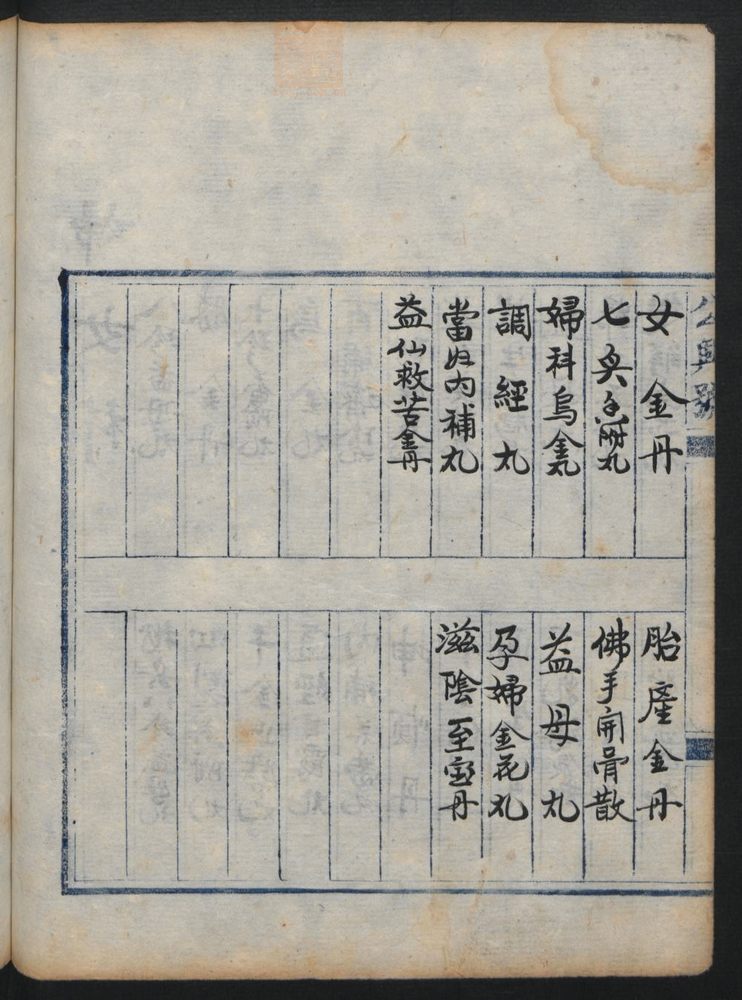 女金丹
七奐香附丸
婦科烏金丸
調經丸
當歸內補丸
益仙救苦金丹
胎產金丹
佛手開骨散
益母丸
孕婦金花丸
滋陰至寶丹